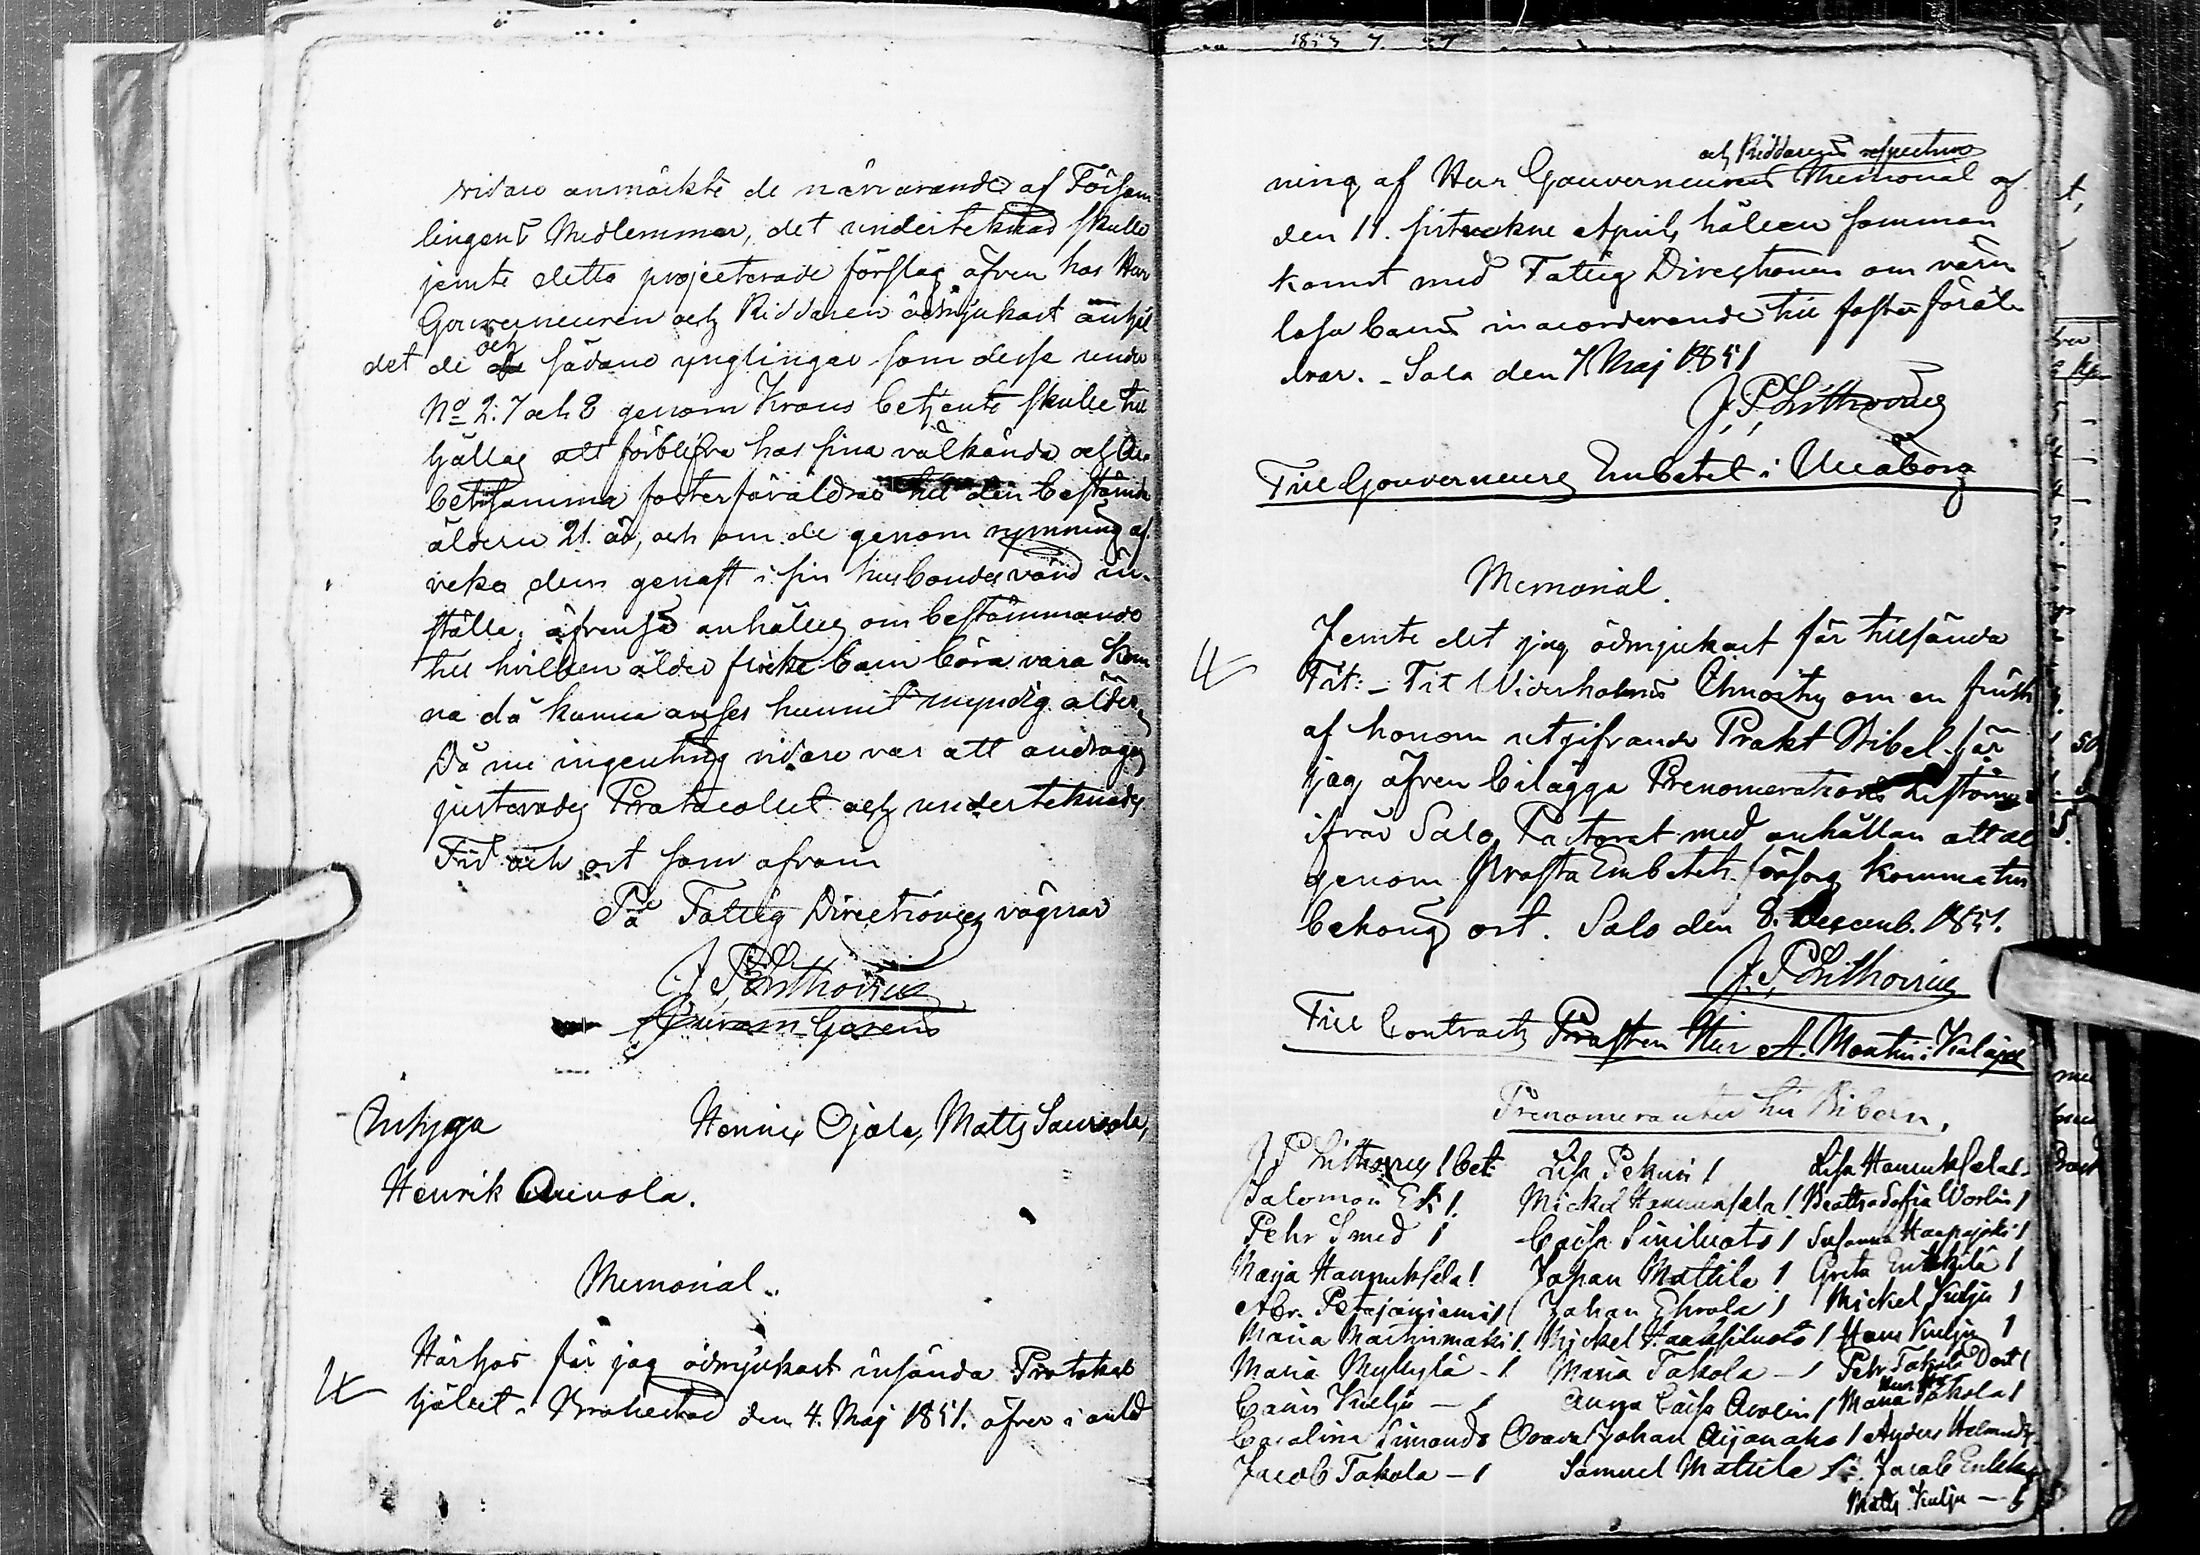 vidare anmärkte de närvarande af Försam
lingens Medlemmar, det undertecknad skulle
jemte detta projecterade förslag äfven hos Herr
Gouverneuren och Riddaren ödmjukast anhål
det de och sådane ynglingar som desse under
No 2. 7 och 8 genom Krono betjente skulle till
hållas att förblifva hos sina välkända och Ar
betsamma fosterföräldrar till den bestämda
åldern 21. år, och om de genom rymning af
veka dem genast i sin husbondes vård in-
ställa, äfvenså anhålles om bestämmande
till hvilken ålder flicke barn böra vara kom
na då kunna anses hunnit myndig ålder,
Då nu ingenting vidare var att andraga,
justerades Protocollet och undertecknades
Tid och ort som ofvan
På Fattig Directionens vägnar
J. P. Lithovius
Henric Ojala, Matts Saurola,
Henrik Arivola.
Memorial.
Härhos får jag ödmjukast insända Protokol
hållet i Brahestad den 4. Maj 1851. äfven i anled
och Riddarens respective
ning af Herr Gouverneurens Memorial af
den 11. sistvekne April, hållen samman
komst med Fattig Directionen om värn
lösa barns inaccorderande till foster föräl
drar. - Salo den 7 Maj 1851
J. P. Lithovius
Till Gouverneurs Embetet i Uleåborg
Memorial.
Jemte det jag ödmjukast får tillsända
Tit: - Tit Widerholms om en
af honom utgifvande Prakt Bibel får
jag äfven bilägga Prenumerations Listorna
ifrån Salo Pastorat med anhållan att de
genom Prosta Embetets försorg komma till
behörig ort. Salo den 8. Decemb. 1851.
J. P. Lithovius
Till Contracts Prosten Herr A. Montin i Kalajoki
Prenumeranter till Bibeln,
J P Lithovius 1 bet. Lisa Pekuri 1 Lisa Hannuksela 1
Salomon Erk 1. Mickel Hannuksela 1 Beatha Sofia Worlin 1
Pehr Smed 1 Caisa Siniluoto 1 Susanna Haapajoki 1
Maija Hannuksela 1 Johan Mattila 1 Greta Erkkilä 1
Abr. Petäjäniemi 1 Johan Ehrola 1 Mickel Kulju 1
Maria Martinmäki 1 Mickel Haaksiluoto 1 Hans Kulju 1
Maria Myllylä - 1 Maria Takola - 1 Pehr Dott 1
Caris Kulju - 1 Anna Caisa Avelin 1 Maria Takola 1
Carolina Simonds Orava Johan Aijänaho 1 Anders
Jacob Takola - 1 Samuel Mattila 1 Jacob Erkki
Matts Kulju - 1